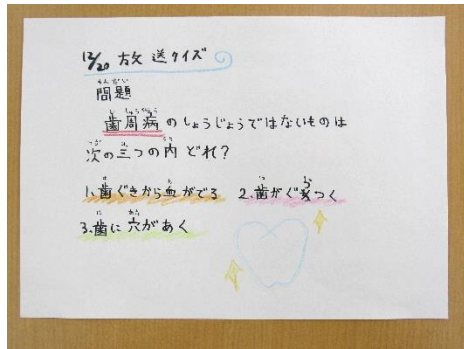 12/20 放送クイズ
問題
歯周病のしょうじょうではないものは
次の三つの内どれ?
1.歯ぐきから血がでる 2.歯がぐらつく
3.歯に穴があく